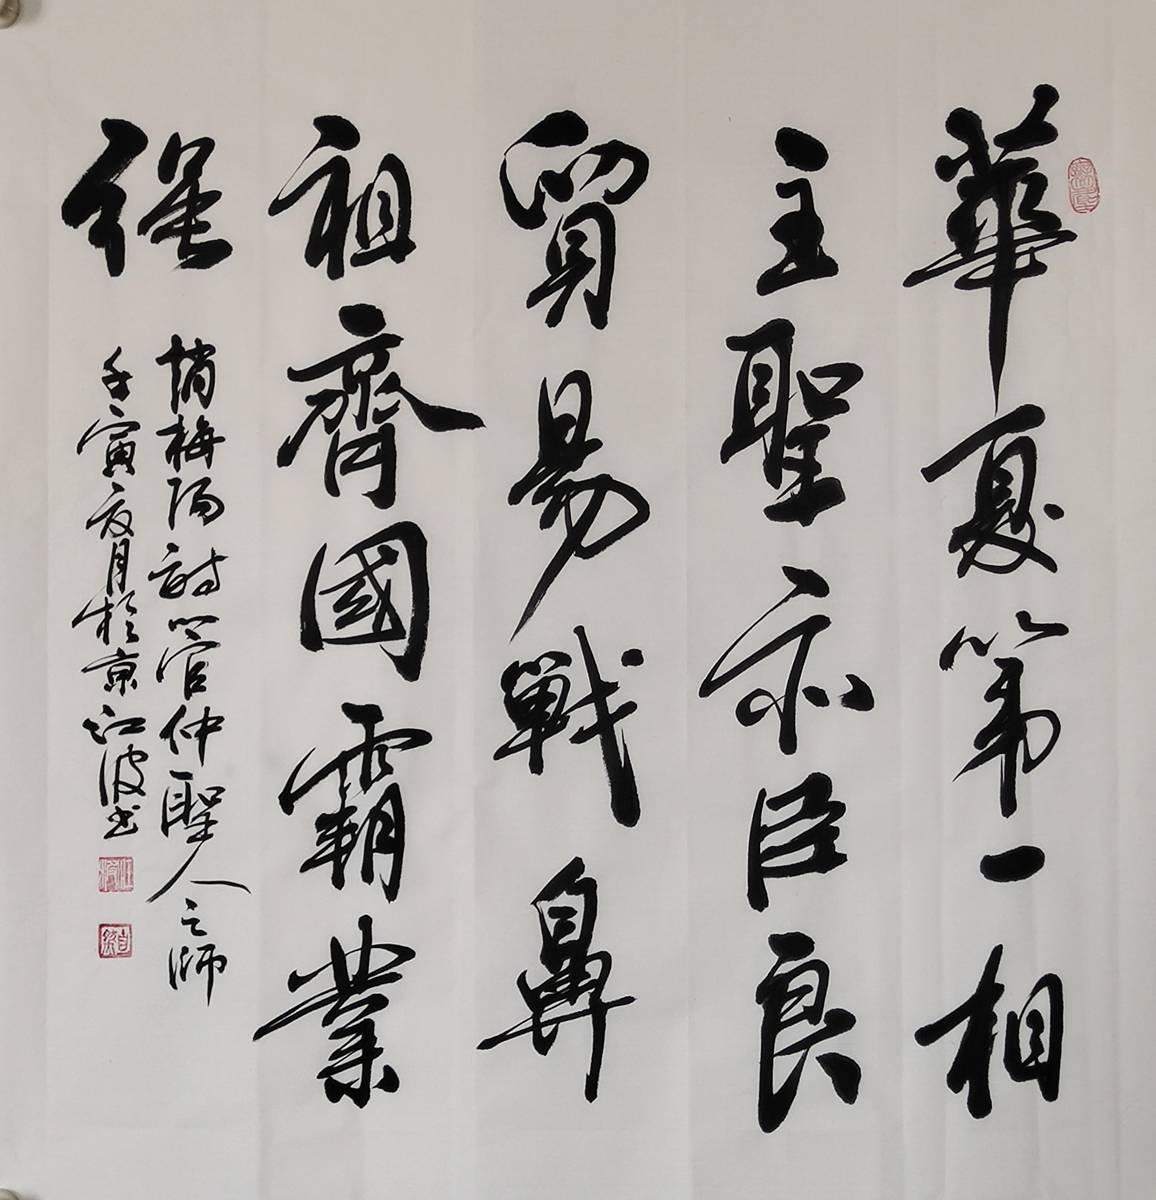 華夏第一相
主聖亦臣良
貿易戰鼻
祖齊國霸業
強
趙梅陽詩管仲聖人之師
壬寅夏月於京江波书